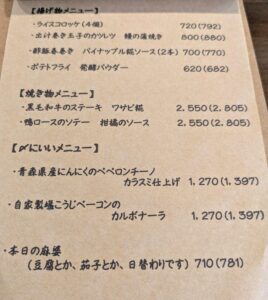 【揚げ物メニュー】
・ライスコロッケ(4個) 720(792)
・出汁巻き玉子のカツレツ 鰻の蒲焼き 800(880)
・酢飯春巻き パイナップル糀ソース(2本) 700(770)
・ポテトフライ 発酵パウダー 620(682)
【焼き物メニュー】
・黒毛和牛のステーキ ワサビ糀 2.550(2.805)
・鴨ロースのソテー 柑橘のソース 2.550(2.805)
【〆にいいメニュー】
・青森県産にんにくのペペロンチーノ
カラスミ仕上げ 1,270(1,397)
・自家製塩こうじベーコンの
カルボナーラ 1,270(1,397)
・本日の麻婆
(豆腐とか、茄子とか、日替わりです) 710(781)